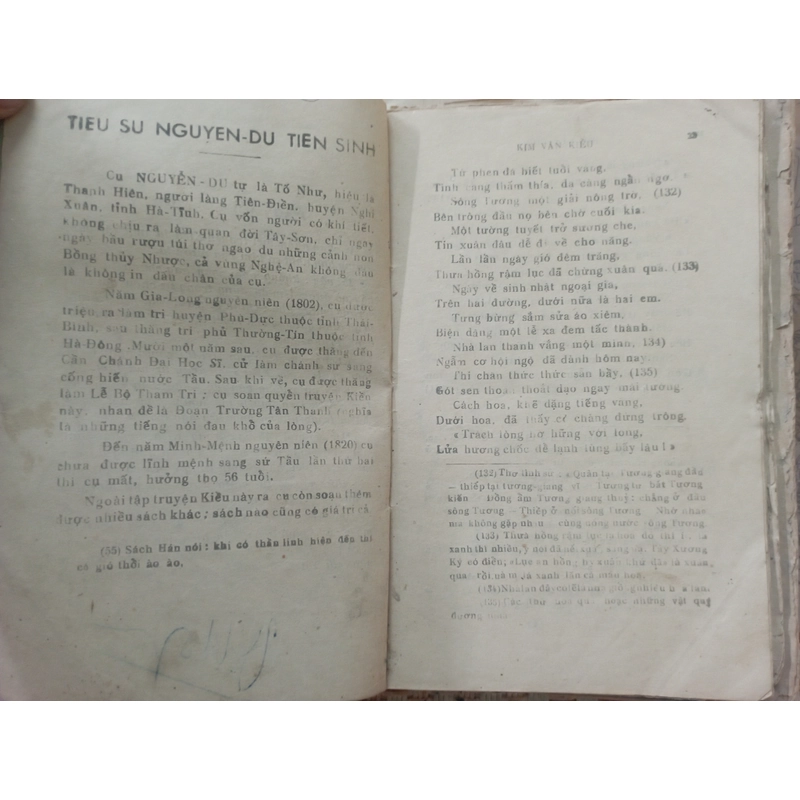 TIEU SU NGUYEN-DU TIEN SINH
Cu NGUYỄN-DU tự là Tố Như, hiệu là
Thanh Hiên, người làng Tiên-Điền, huyện Nghi
Xuân, tỉnh Hà-Tĩnh. Cụ vốn người có khí tiết,
không chịu ra làm quan đời Tây-Sơn, chỉ ngày
ngày bầu rượu túi thơ ngao du những cảnh non
Bồng thủy Nhược, cả vùng Nghệ-An không đâu
là không in dấu chân của cụ.
Năm Gia-Long nguyên niên (1802), cụ được
triệu ra làm tri huyện Phù-Dực thuộc tỉnh Thái-
Bình, sau thăng tri phủ Thường-Tín thuộc tỉnh
Hà Đông. Mười một năm sau, cụ được thăng đến
Cần Chánh Đại Học Sĩ, cử làm chánh sứ sang
cống hiến nước Tầu. Sau khi về, cụ được thăng
làm Lễ Bộ Tham Tri; cụ soạn quyển truyện Kiều
này, nhan đề là Đoạn Trường Tân Thanh (nghĩa
là những tiếng nói đau khổ của lòng).
Đến năm Minh-Mệnh nguyên niên (1820) cụ
chưa được lĩnh mệnh sang sứ Tầu lần thứ hai
thì cụ mất, hưởng thọ 56 tuổi.
Ngoài tập truyện Kiều này ra cụ còn soạn thêm
được nhiều sách khác; sách nào cũng có giá trị cả.
(55) Sách Hán nói: khi có thần linh hiện đến thì
có gió thổi ào ào.
KIM VÂN KIỀU 29
Từ phen đá biết tuổi vàng,
Tình càng thấm thía, dạ càng ngẩn ngơ.
Sông Tương một giải nông trờ, (132)
Bên trông đầu nọ bên chờ cuối kia.
Một tường tuyết trở sương che,
Tin xuân đâu dễ đi về cho năng.
Lần lần ngày gió đêm trăng,
Thưa hồng rậm lục đã chừng xuân qua. (133)
Ngày về sinh nhật ngoại gia,
Trên hai đường, dưới nữa là hai em.
Tưng bừng sắm sửa áo xiêm,
Biện dâng một lễ xa đem tấc thành.
Nhà lan thanh vắng một mình, 134)
Ngẫm cơ hội ngộ đã dành hôm nay.
Thì chân thức thức sẵn bầy, (135)
Gót sen thoăn thoắt dạo ngay mái tường.
Cách hoa, khẽ dặng tiếng vàng,
Dưới hoa, đã thấy có chàng đứng trông.
« Trách lòng hờ hững với lòng,
Lửa hương chốc để lạnh lùng bấy lâu! »
(132) Thơ tình sử: «Quân tại Tương giang đầu
– thiếp tại tương-giang vĩ – Tương tư bất Tương
kiến – Đồng ẩm Tương giang thủy: chàng ở đầu
sông Tương – Thiếp ở cuối sông Tương – Nhớ nhau
mà không gặp nhau – cùng uống nước sông Tương.
(133) Thưa hồng rậm lục là hoa đỏ thì ít lá
xanh thì nhiều,
Ký có điều:
(134) Nhà lan
(135)
đương